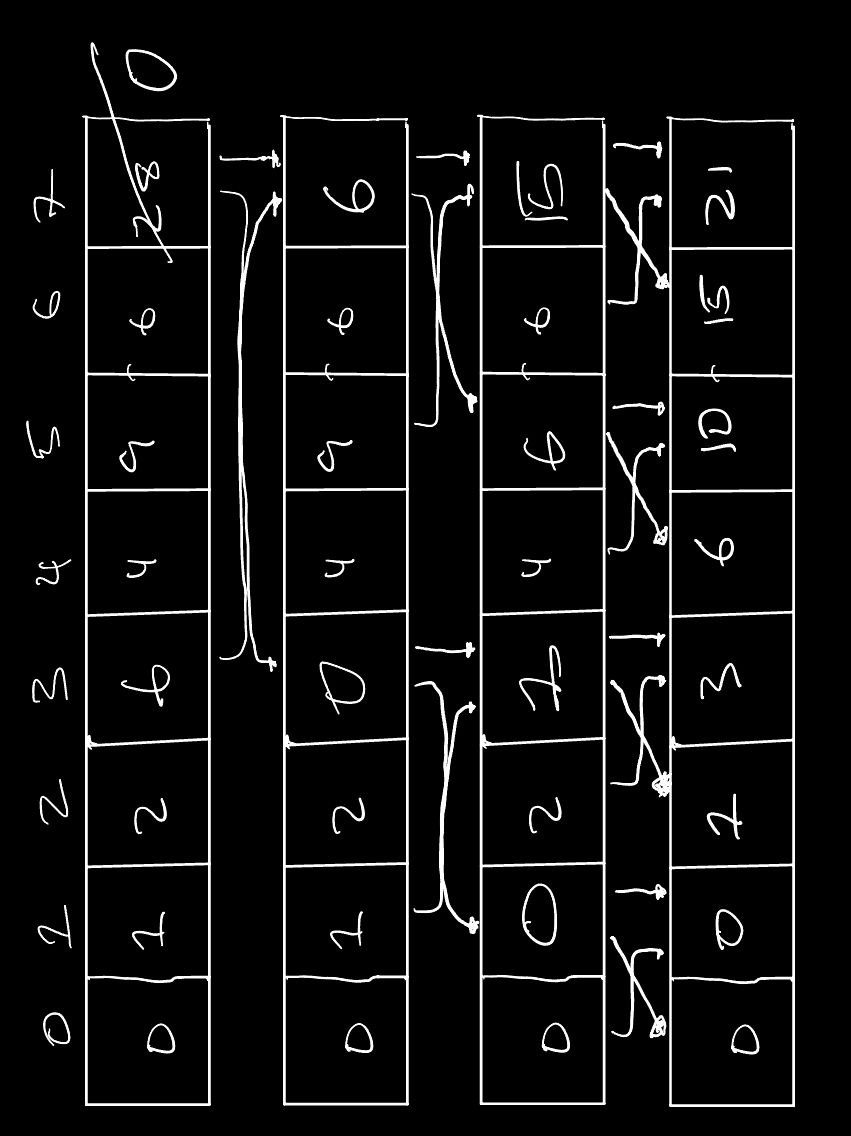 0 1 2 3 4 5 6 7
0 1 2 6 4 9 6 28 0
0 1 2 0 4 9 6 6
0 0 2 1 4 6 6 15
0 0 1 3 6 10 15 21